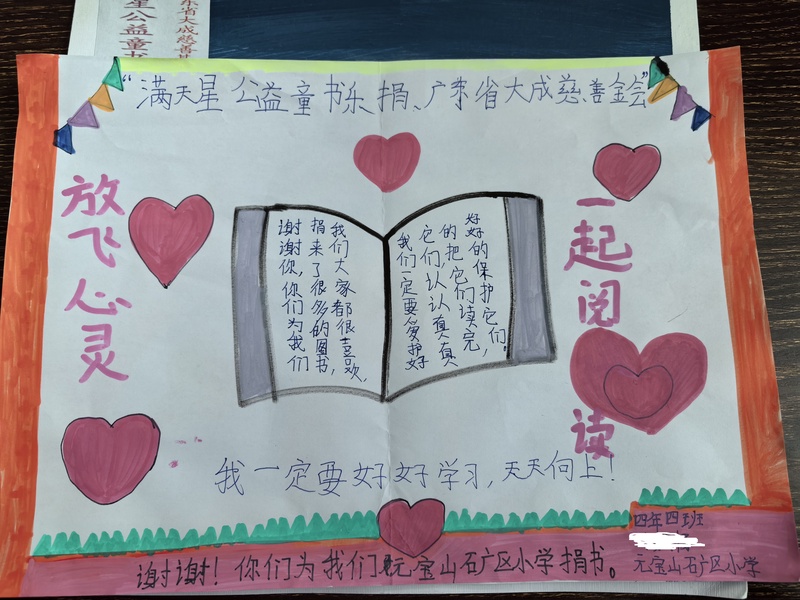 “满天星公益童书乐捐、广东省大成慈善金会”
放飞心灵
谢谢你,你们为我们
捐来了很多的图书,
我们大家都很喜欢,
我们一定要爱护好
它们认认真真
的把它们读完,
好好的保护它们.
一起阅读
我一定要好好学习,天天向上!
谢谢!你们为我们元宝山矿区小学捐书。
四年四班
元宝山矿区小学
星公益童书
东省大成慈善